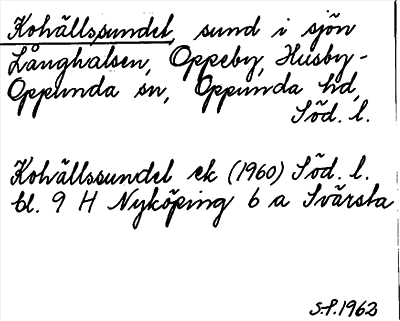 Kohällssundet, sund i sjön
Långhalsen, Oppeby, Husby-
Oppunda sn, Oppunda hd,
Söd. l.
Kohällssundet ek (1960) Söd. l.
bl. 9 H Nyköping 6 a Svärsta
S.P. 1962